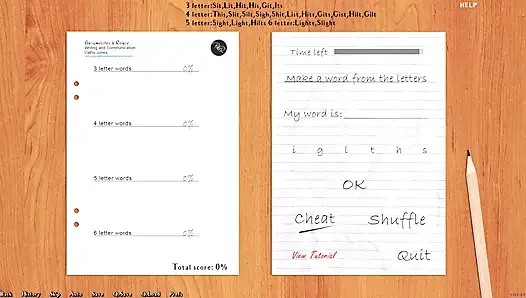 3 letter:Sit,Lit,Hit,His,Git,Its
4 letter:This,Slit,Silt,Sigh,Shit,List,Hits,Gits,Gist,Hilt,Gilt
5 letter:Sight,Light,Hilts 6 letter:Lights,Slight
HELP
Writing and Communication
Cathy Jones
3 letter words 0%
4 letter words 0%
5 letter words 0%
6 letter words 0%
Total score: 0%
Time left
Make a word from the letters
My word is:
i g l t h s
OK
Cheat Shuffle
View Tutorial Quit
Back History Skip Auto Save Q.Save Q.Load Prefs